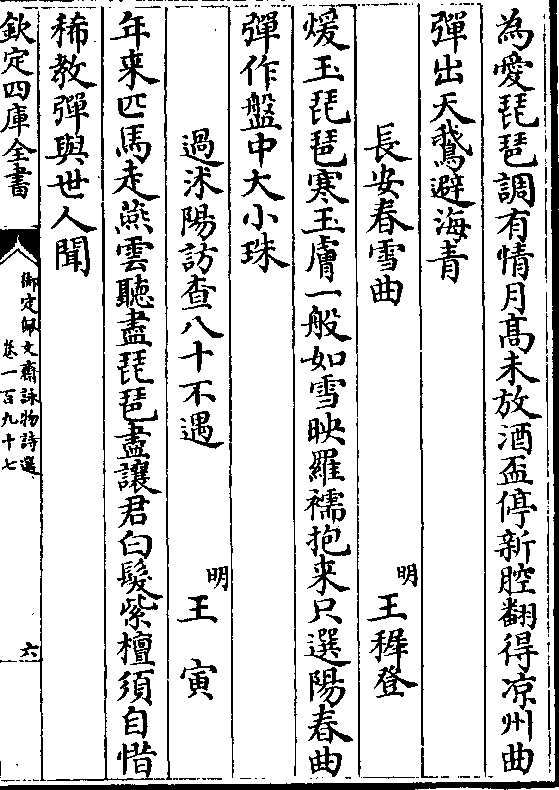 為愛琵琶調有情月髙未放酒盃停新腔翻得凉州曲
彈出天鵝避海青
長安春雪曲　明　王穉登
煖玉琵琶寒玉膚一般如雪映羅襦抱来只選陽春曲
彈作盤中大小珠
過沭陽訪查八十不遇　明　王寅
年来匹馬走燕雲聽盡琵琶盡讓君白髮紫檀須自惜
稀教彈與世人聞
欽定四庫全書
御定佩文齋詠物詩選
卷一百九十七
六